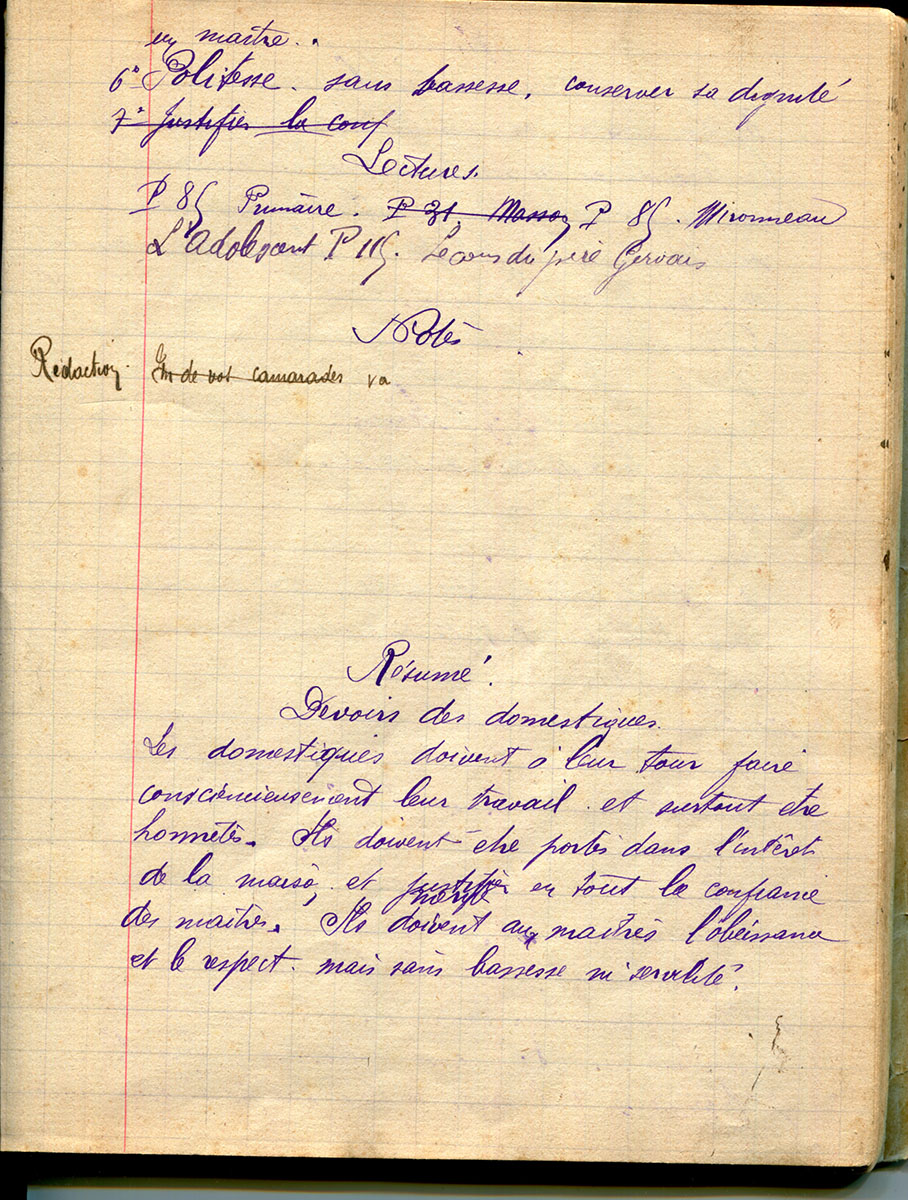 maître.
6° Politesse. sans bassesse. conserver sa dignité
7° Justifier la conf
Lectures.
P 85 Primaire. P 31 Masson P 85. Mironneau
L'Adolescent P 115. Le cours du père Gervais
Notes
Rédaction. Un de vos camarades va
Résumé.
Devoirs des domestiques.
Les domestiques doivent à leur tour faire
consciencieusement leur travail et surtout être
honnêtes. Ils doivent être portés dans l'intérêt
de la maison, et justifier en tout la confiance
des maîtres. Ils doivent aux maîtres l'obéissance
et le respect. mais sans bassesse ni servilité.